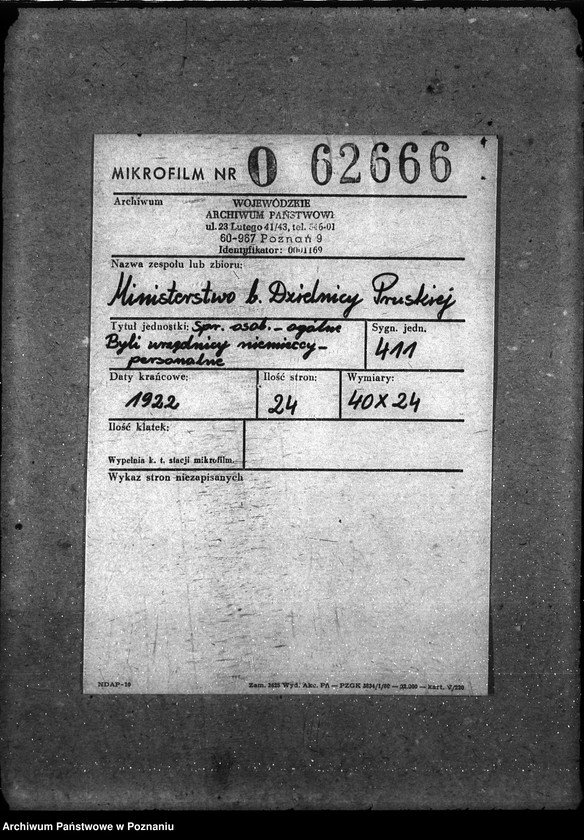 MIKROFILM NR O 62666
Archiwum
WOJEWÓDZKIE
ARCHIWUM PAŃSTWOWE
ul. 23 Lutego 41/43, tel. 546-01
60-967 Poznań 9
Identyfikator: 0001169
Nazwa zespołu lub zbioru:
Ministerstwo b. Dzielnicy Pruskiej
Tytuł jednostki: Spr. osob. - ogólne
Byli urzędnicy niemieccy -
personalne
Sygn. jedn.
411
Daty krańcowe:
1922
Ilość stron:
24
Wymiary:
40 X 24
Ilość klatek:
Wypełnia k. t. stacji mikrofilm.
Wykaz stron niezapisanych
NDAP-19
Zam. Wyd. Akc. Pń — PZGK — kart.
Archiwum Państwowe w Poznaniu